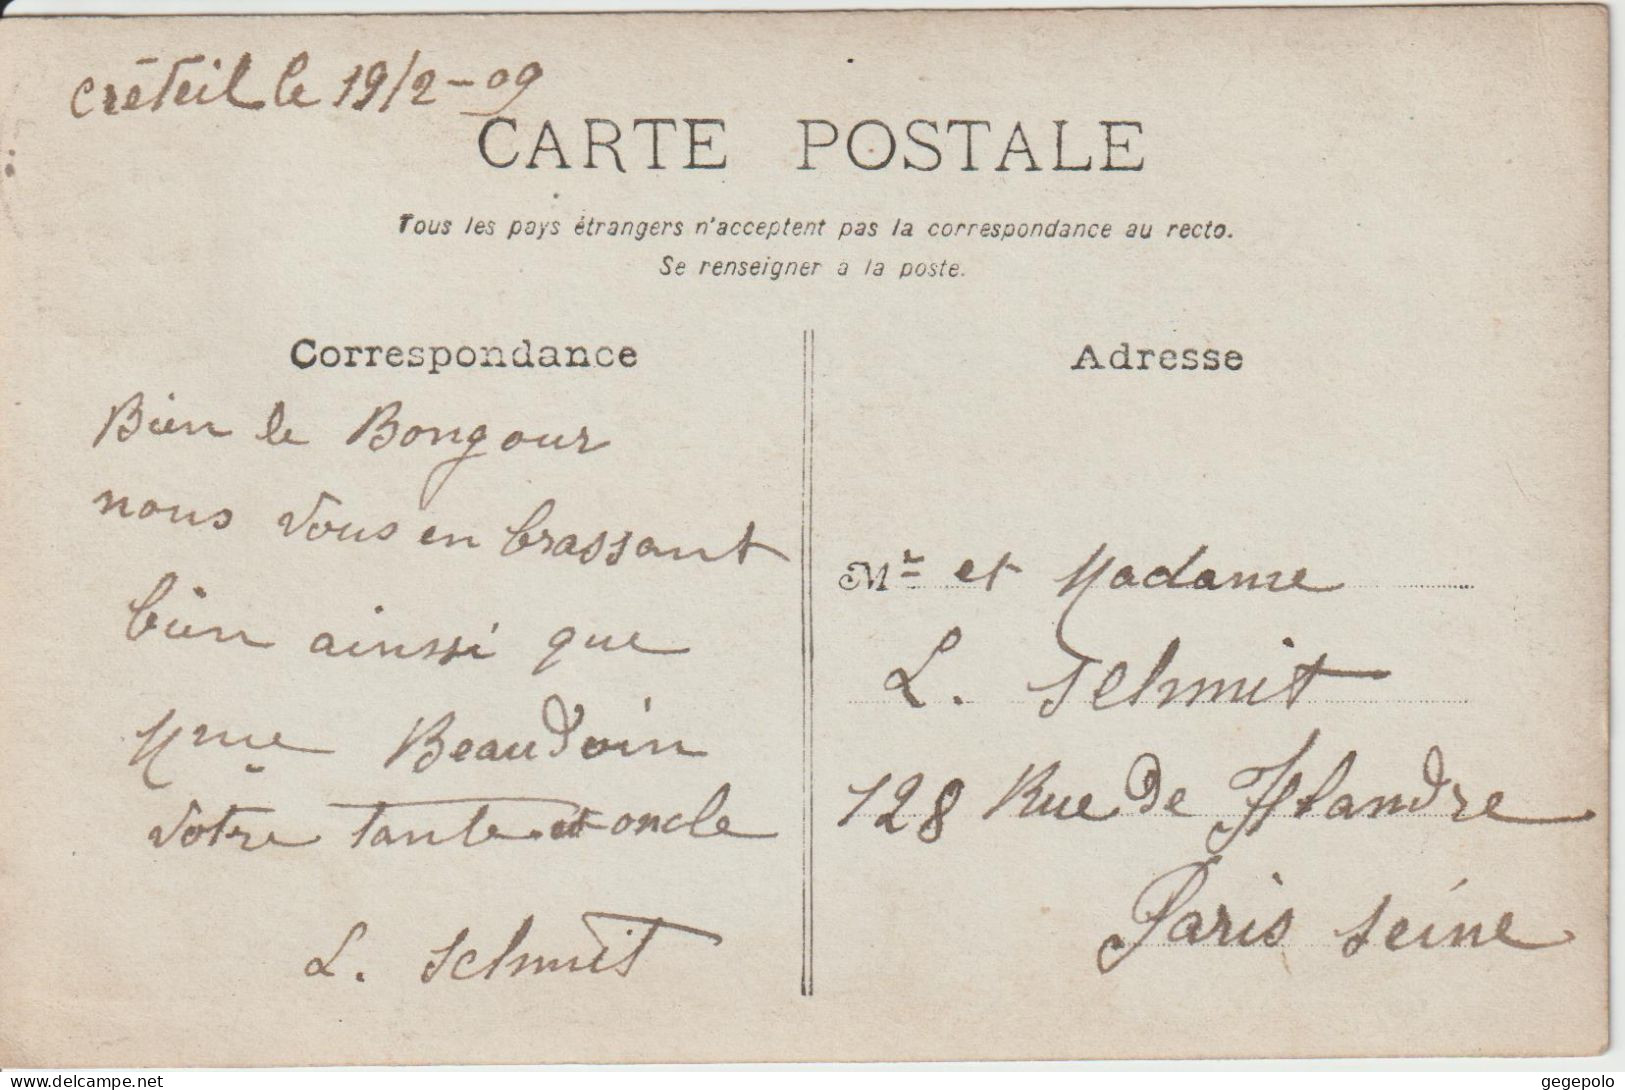 Créteil le 19/2-09
CARTE POSTALE
Tous les pays étrangers n'acceptent pas la correspondance au recto.
Se renseigner a la poste.
Correspondance
Bien le Bongour
nous vous en brassant
bien ainssi que
Mme Beaudoin
votre tante et oncle
L. Schmit
Adresse
Mr et Madame
L. Schmit
128 Rue de Flandre
Paris Seine
gegepolo
delcampe.net